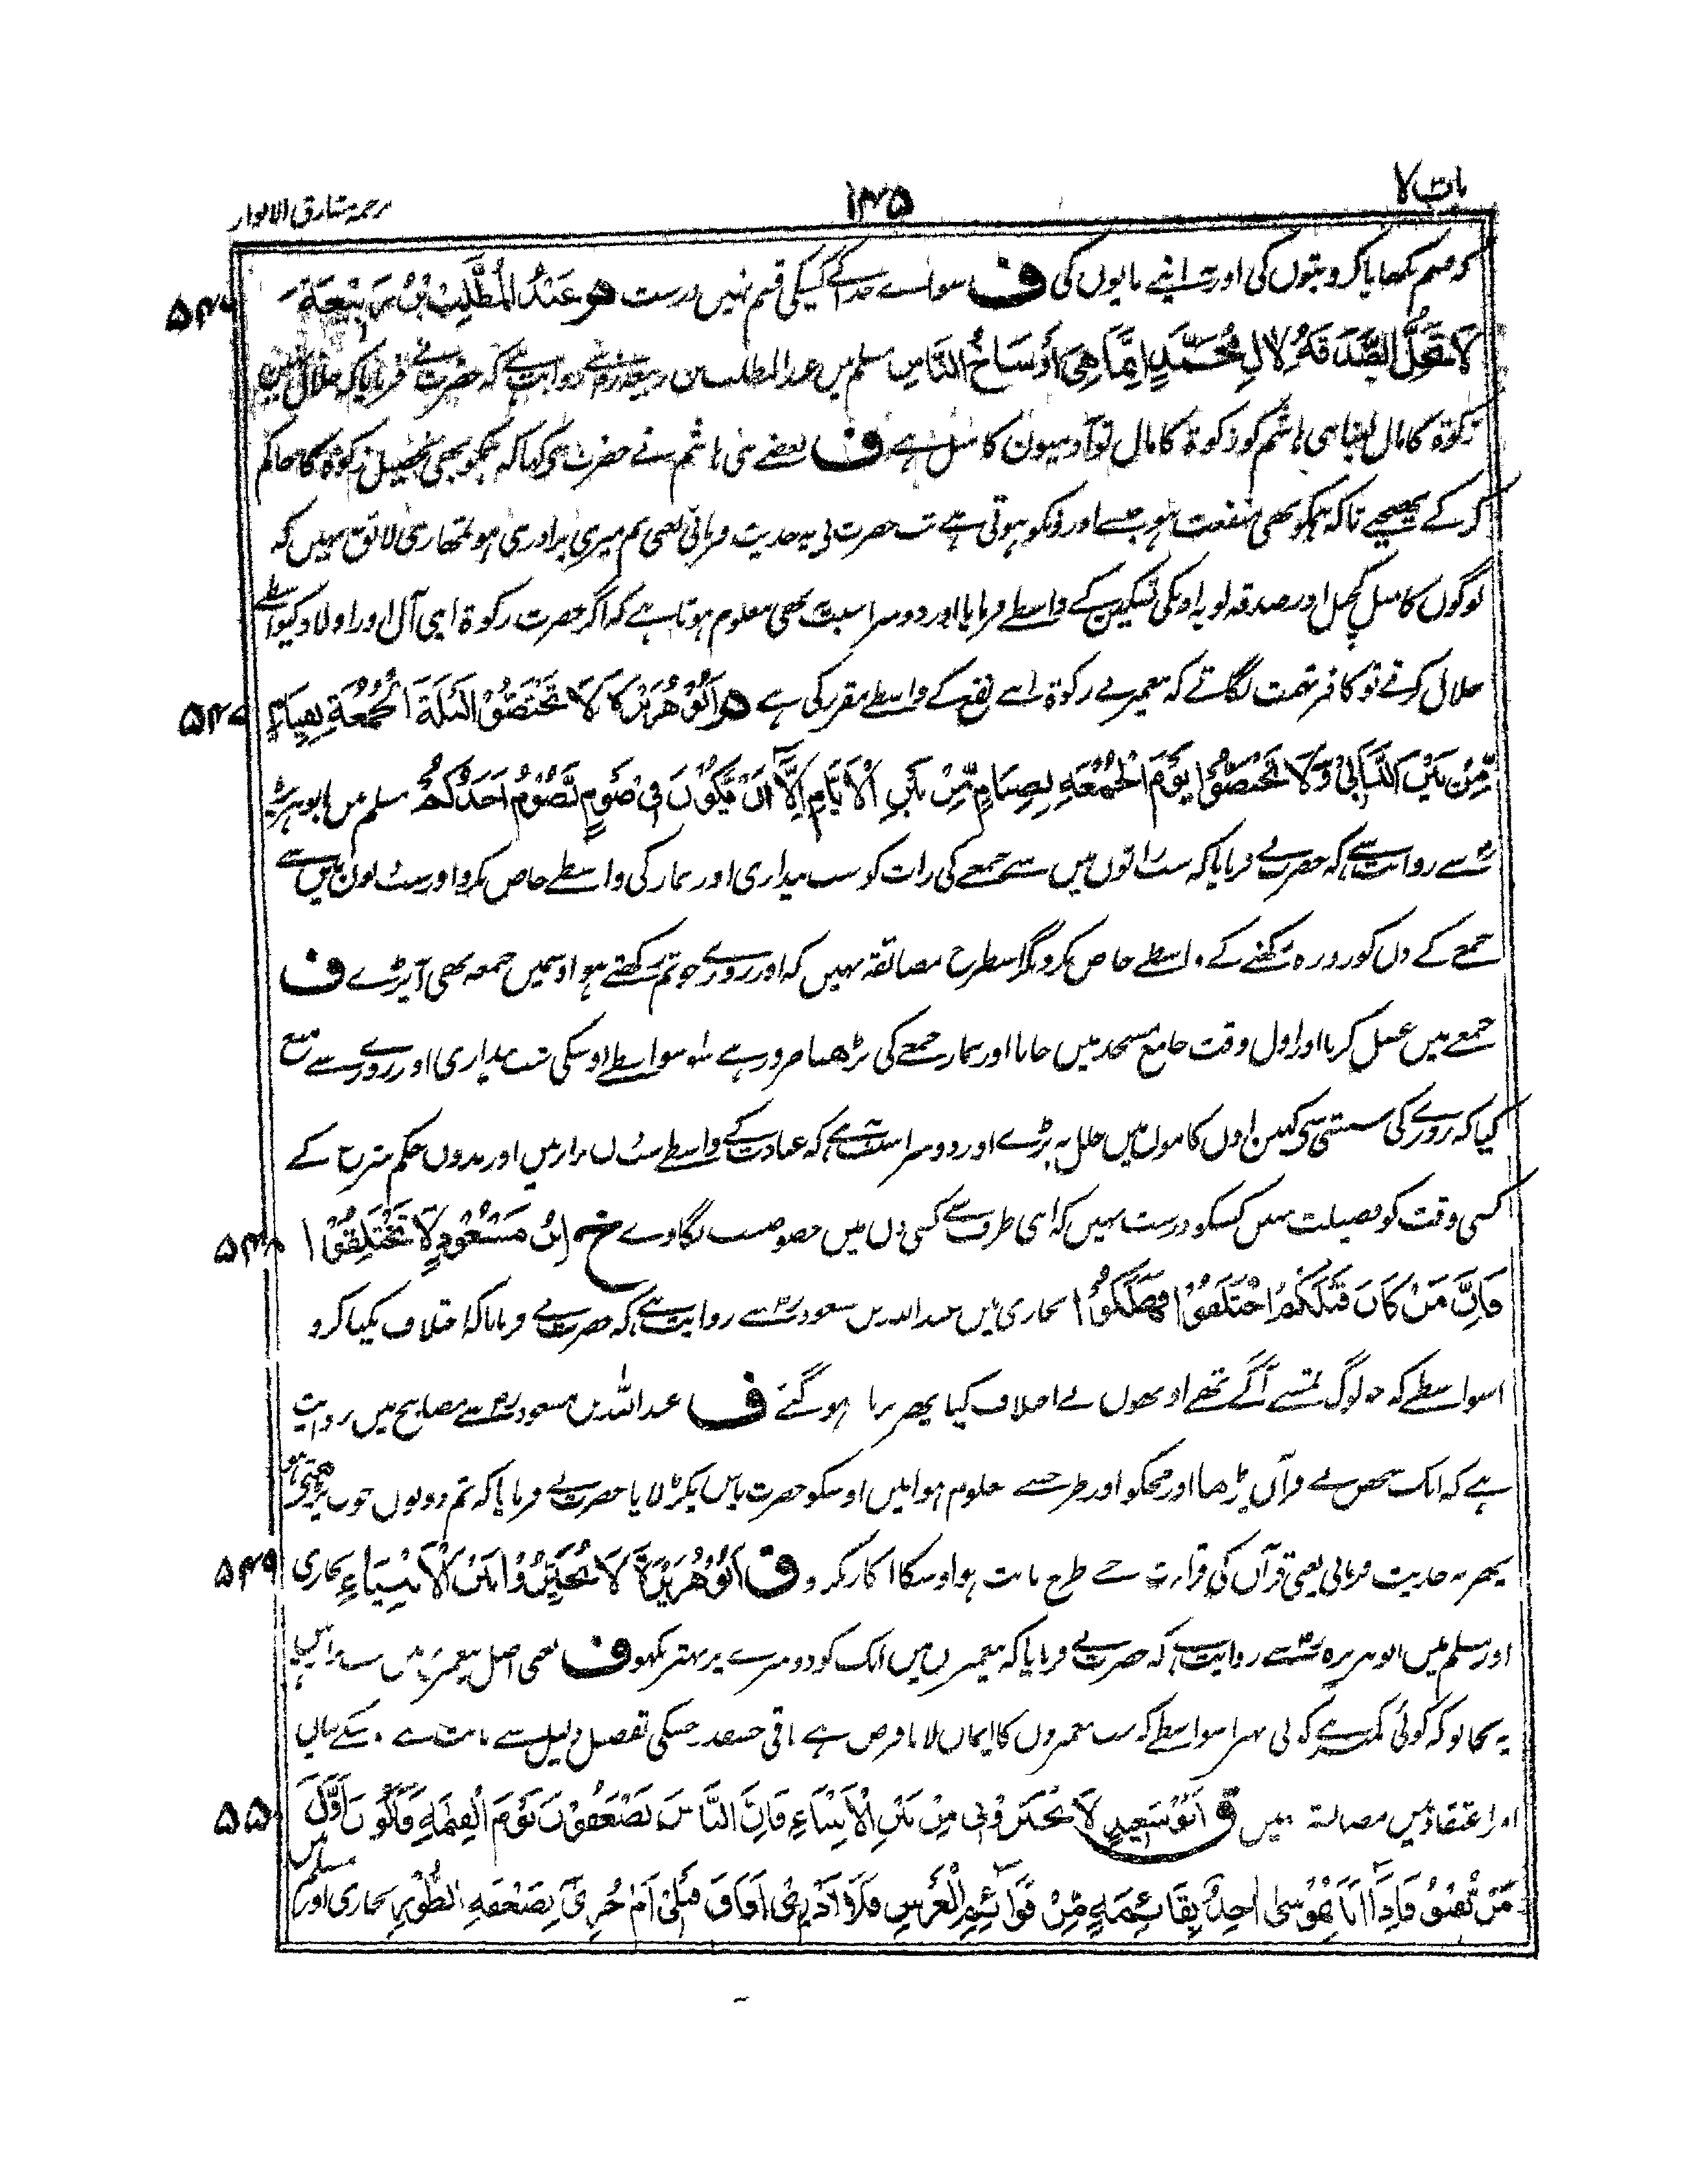 باب ٧ ١٣٥ ترجمہ مشارق الانوار
کہ قسم نکھایا کرو بتوں کی اور نہ اپنے باپوں کی ف سواے خدا کے کسیکی قسم نہیں درست ھو عَبْدُ الْمُطَّلِبْ بْنُ رَبِیْعَةَ ٥٤٦
لَا تَحِلُّ الصَّدَقَةُ لِاٰلِ مُحَمَّدٍ اِنَّمَا هِیَ اَوْسَاخُ النَّاسِ مسلم میں عبد المطلب بن ربیعہ رضہ سے روایت ہے کہ حضرت نے فرمایا کہ حلال نہیں
زکوة کا مال لینا بنی ہاشم کو زکوة کا مال تو آدمیون کا میل ہے ف بعضے بنی ہاشم نے حضرت سے کہا کہ ہمکو بھی تحصیل زکوة کا حاکم
کر کے بھیجیے تاکہ ہمکو بھی منفعت ہو جیسے اورونکو ہوتی ہے تب حضرت نے یہ حدیث فرمائی یعنی تم میری برادری ہو تمھاری لائق نہیں کہ
لوگوں کا میل کچیل اور صدقہ لو یہ اونکی تسکین کے واسطے فرمایا اور دوسرا سبب بھی معلوم ہوتا ہے کہ اگر حضرت زکوة اپنی آل اور اولاد کیواسطے
حلال کرتے تو کافر تہمت لگاتے کہ پیغمبر نے زکوة اپنے نفع کے واسطے مقرر کی ہے ھ اَبُوْ هُرَیْرَةَ لَا تَخْتَصُّوْا لَیْلَةَ الْجُمُعَةِ بِقِیَامٍ ٥٤٧
مِّنْ بَیْنِ اللَّیَالِیْ وَلَا تَخْتَصُّوْا یَوْمَ الْجُمُعَةِ بِصِیَامٍ مِّنْ بَیْنِ الْاَیَّامِ اِلَّا اَنْ یَّکُوْنَ فِیْ صَوْمٍ یَّصُوْمُ اَحَدُکُمْ مسلم میں ابو ہریرہ
رضہ سے روایت ہے کہ حضرت نے فرمایا کہ سب راتوں میں سے جمعے کی رات کو شب بیداری اور نماز کی واسطے خاص نکرو اور سب دنون میں سے
جمعے کے دن کو روزہ رکھنے کے واسطے خاص نکرو مگر اسطرح مضائقہ نہیں کہ اور روزے جو تم رکھتے ہو اوسمیں جمعہ بھی آپڑے ف
جمعے میں غسل کرنا اور اول وقت جامع مسجد میں جانا اور نماز جمعے کی پڑھنا ضرور ہے اسواسطے اوسکی شب بیداری اور روزے سے منع
کیا کہ روزے کی سستی سے کہیں اون کاموں میں خلل نہ پڑے اور دوسرا سبب یہ ہے کہ عبادت کے واسطے سب دن برابر ہیں اور بدون حکم شریعت کے
کسی وقت کو فضیلت نہیں کسیکو درست نہیں کہ اپنی طرف سے کسی دن میں خصوصیت لگاوے خ اِبْنُ مَسْعُوْدٍ لَا تَخْتَلِفُوْا ٥٤٨
فَاِنَّ مَنْ کَانَ قَبْلَکُمْ اخْتَلَفُوْا فَهَلَکُوْا بخاری میں عبد اللہ بن مسعود رضہ سے روایت ہے کہ حضرت نے فرمایا کہ اختلاف نکیا کرو
اسواسطے کہ جو لوگ تمسے آگے تھے اونھوں نے اختلاف کیا پھر برباد ہو گئے ف عبد اللہ بن مسعود رضہ سے مصابیح میں روایت
ہے کہ ایک شخص نے قرآن پڑھا اور مجکو اور طرح سے معلوم ہوا میں اوسکو حضرت پاس پکڑ لایا حضرت نے فرمایا کہ تم دونوں خوب پڑھتے ہو
پھر یہ حدیث فرمائی یعنی قرآن کی قراءت جس طرح ثابت ہو اوسکا انکار نکرو ق اَبُوْ هُرَیْرَةَ لَا تُخَیِّرُوْا بَیْنَ الْاَنْبِیَاءِ بخاری ٥٤٩
اور مسلم میں ابو ہریرہ رضہ سے روایت ہے کہ حضرت نے فرمایا کہ پیغمبروں میں ایک کو دوسرے پر بہتر نکہو ف یعنی اصل پیغمبری میں سب برابر ہیں
یہ نجانو کہ کوئی کمتر ہے کوئی بہتر اسواسطے کہ سب پیغمبروں کا ایمان لانا فرض ہے باقی جسقدر جسکی تفضیل دلیل سے ثابت ہے اسکے بیان
اور اعتقاد میں مضائقہ نہیں ق اَبُوْ سَعِیْدٍ لَا تُخَیِّرُوْنِیْ مِنْ بَیْنِ الْاَنْبِیَاءِ فَاِنَّ النَّاسَ یَصْعَقُوْنَ یَوْمَ الْقِیٰمَةِ فَاَکُوْنُ اَوَّلَ ٥٥٠
مَنْ یُّفِیْقُ فَاِذَا اَنَا بِمُوْسٰی اٰخِذٌ بِقَائِمَةٍ مِّنْ قَوَائِمِ الْعَرْشِ فَلَا اَدْرِیْ اَفَاقَ قَبْلِیْ اَمْ جُزِیَ بِصَعْقَةِ الطُّوْرِ بخاری اور مسلم میں